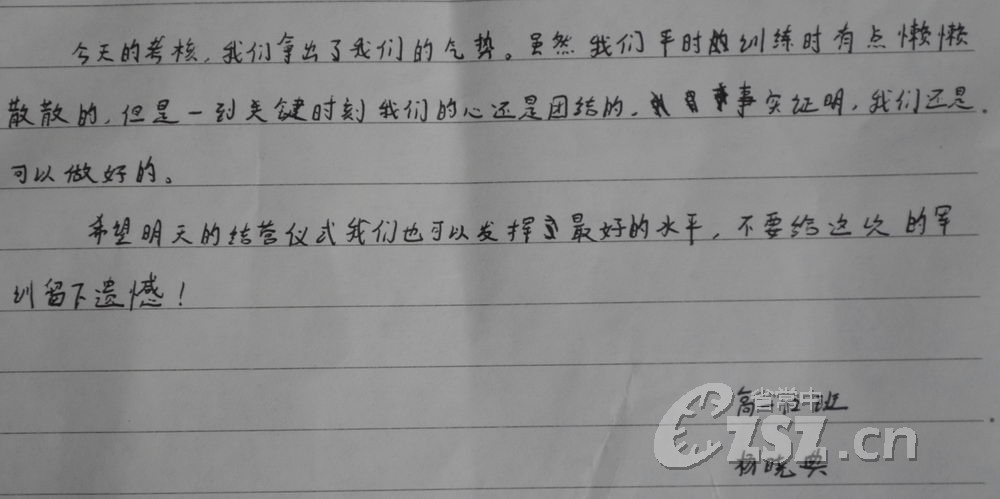 今天的考核，我们拿出了我们的气势。虽然我们平时的训练时有点懒懒
散散的，但是一到关键时刻我们的心还是团结的，事实证明，我们还是
可以做好的。
希望明天的结营仪式我们也可以发挥最好的水平，不要给这次的军
训留下遗憾！
高一 班
省常中
CZSZ.cn
杨晓典